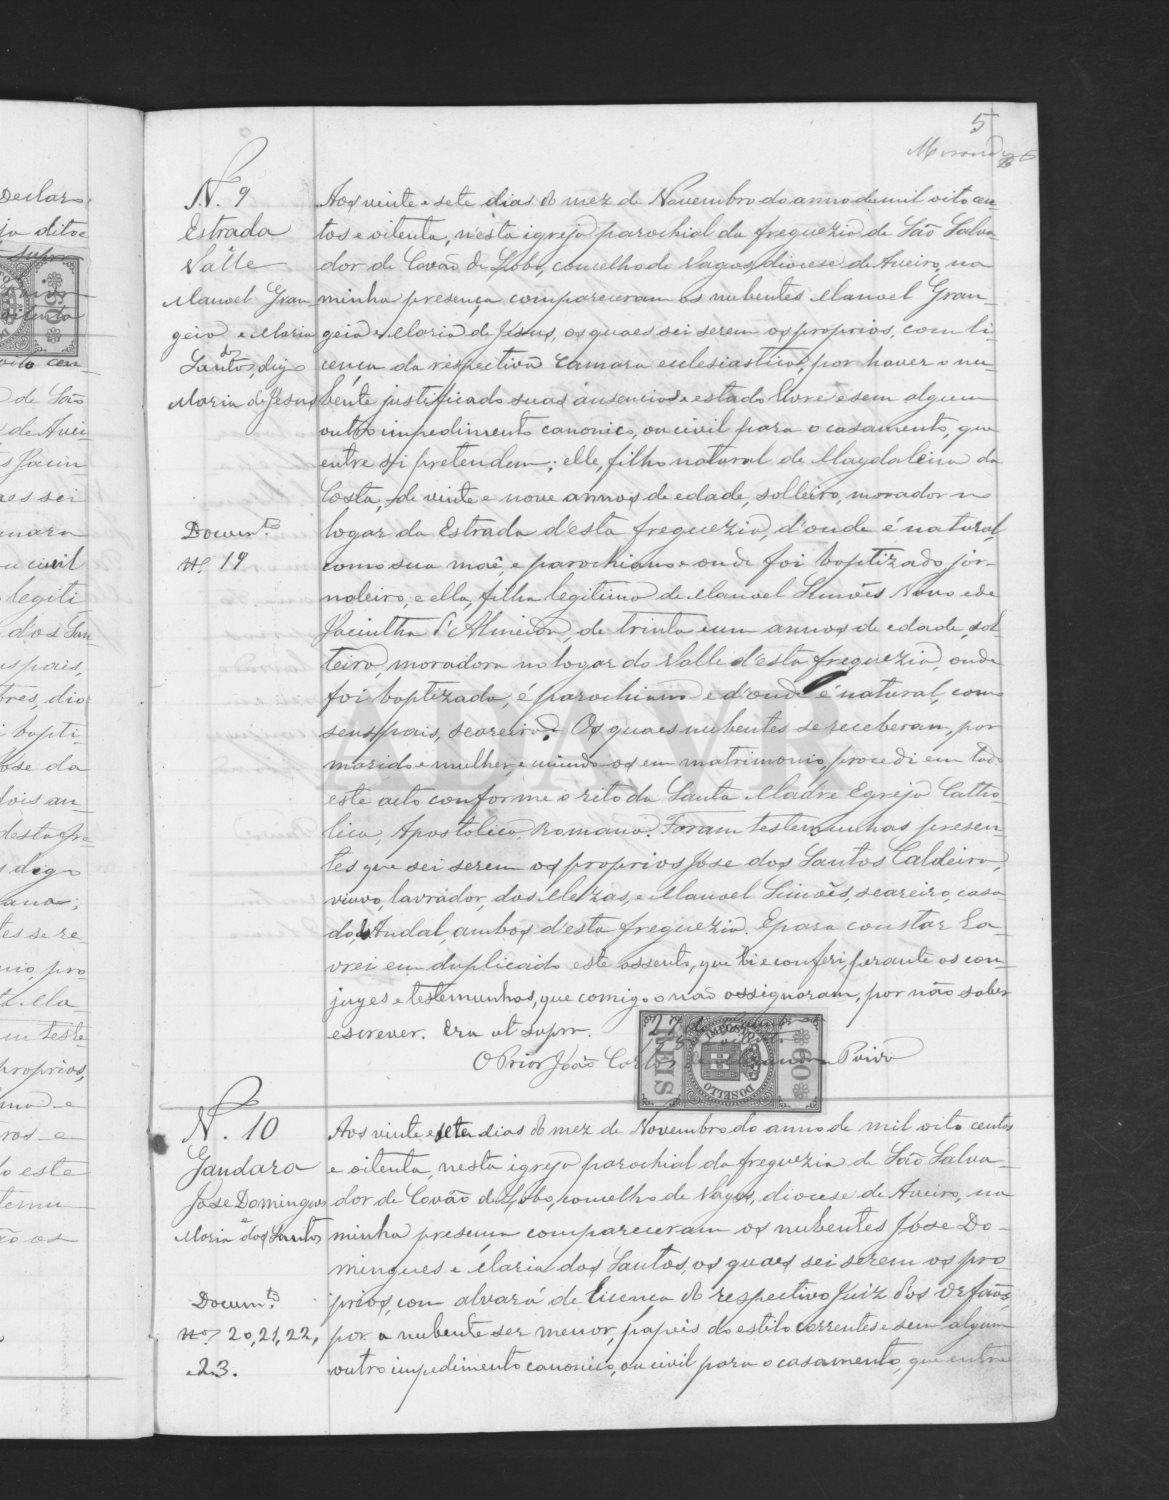 5
N.º 9
Estrada
e
Valle
Manoel Gran-
geia e Maria
dos
Santos, digo
Maria de Jesus
Docum.to
N.º 19
Aos vinte e sete dias do mez de Novembro do anno de mil oito cen-
tos e oitenta, n'esta igreja parochial da freguezia de São Salva-
dor de Covão de Lobo, concelho de Vagos, diocese de Aveiro, na
minha presença, compareceram os nubentes Manoel Gran-
geia e Maria de Jesus, os quaes sei serem os proprios, com li-
cença da respectiva Camara ecclesiastica, por haver o nu-
bente justificado suas ausencias e estado livre e sem algum
outro impedimento canonico, ou civil para o casamento, que
entre si pretendem; elle, filho natural de Magdalena da
Costa, de vinte e nove annos de edade, solteiro, morador no
logar da Estrada d'esta freguezia, d'onde é natural,
como sua mãe, e parochiano e onde foi baptizado, jor-
naleiro; e ella, filha legitima de Manoel Simões Novo e de
Jacintha d'Almeida, de trinta e um annos de edade, sol-
teira, moradora no logar do Valle d'esta freguezia, onde
foi baptizada, é parochiana e d'onde é natural, como
seus pais, seareira. Os quaes nubentes se receberam, por
marido e mulher, e unindo-os em matrimonio, procedi em todo
este acto conforme o rito da Santa Madre Egreja Catho-
lica, Apostolica Romana. Foram testemunhas presen-
tes que sei serem os proprios José dos Santos Caldeira,
viuvo, lavrador, das Mezas, e Manoel Simões, seareiro, casa-
do, d'Andal, ambos d'esta freguezia. E para constar la-
vrei em duplicado este assento, que li e conferi, perante os con-
juges e testemunhas, que comigo o não assignaram, por não saber
escrever. Era ut supra.
O Prior João Carlos Paiva
IMPOSTO DO SELLO
REIS 60
N.º 10
Gandara
José Domingues
e
Maria dos Santos
Docum.tos
N.os 20, 21, 22,
e 23.
Aos vinte e sete dias do mez de Novembro do anno de mil oito centos
e oitenta, nesta igreja parochial da freguezia de São Salva-
dor de Covão de Lobo, concelho de Vagos, diocese de Aveiro, na
minha presença compareceram os nubentes José Do-
mingues e Maria dos Santos, os quaes sei serem os pro-
prios, com alvará de licença do respectivo Juiz dos Orfãos,
por a nubente ser menor, papeis do estilo correntes e sem algum
outro impedimento canonico, ou civil para o casamento, que entre